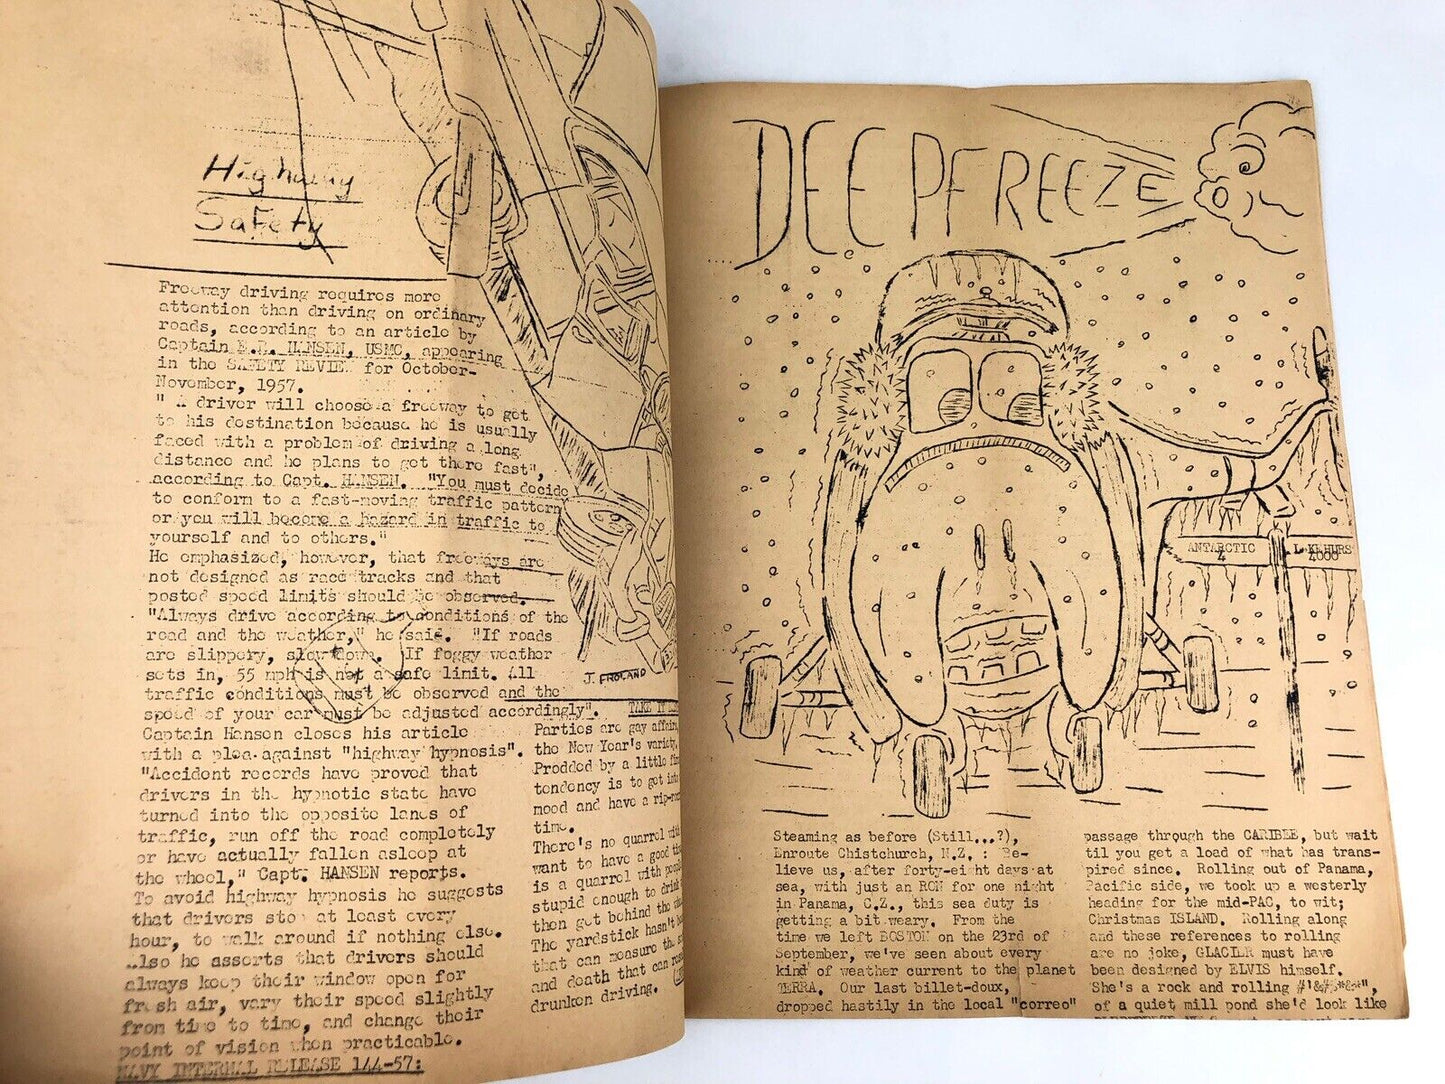 Highway
Safety
Freeway driving requires more
attention than driving on ordinary
roads, according to an article by
Captain E.R. HANSEN, USMC, appearing
in the SAFETY REVIEW for October-
November, 1957.
" A driver will choose a freeway to get
to his destination because he is usually
faced with a problem of driving a long
distance and he plans to get there fast",
according to Capt. HANSEN. "You must decide
to conform to a fast-moving traffic pattern
or you will become a hazard in traffic to
yourself and to others."
He emphasized, however, that freeways are
not designed as race tracks and that
posted speed limits should be observed.
"Always drive according to conditions of the
road and the weather," he said. "If roads
are slippery, slow down. If foggy weather
sets in, 55 mph is not a safe limit. All
traffic conditions must be observed and the
speed of your car must be adjusted accordingly".
Captain Hansen closes his article
with a plea against "highway hypnosis".
"Accident records have proved that
drivers in the hypnotic state have
turned into the opposite lanes of
traffic, run off the road completely
or have actually fallen asleep at
the wheel," Capt. HANSEN reports.
To avoid highway hypnosis he suggests
that drivers stop at least every
hour, to walk around if nothing else.
Also he asserts that drivers should
always keep their window open for
fresh air, vary their speed slightly
from time to time, and change their
point of vision when practicable.
NAVY INTERNAL RELEASE 144-57:
J. FROLAND
TAKE IT
Parties are gay affairs,
the New Year's variety.
Prodded by a little
tendency is to get into
mood and have a
time.
There's no quarrel with
want to have a good
is a quarrel with
stupid enough to drink
then get behind the
The yardstick hasn't
that can measure the
and death that can
drunken driving.
DEEPFREEZE
ANTARCTIC
4
LAKEHURS
4000
Steaming as before (Still...?),
Enroute Chistchurch, N.Z. : Be-
lieve us, after forty-eight days at
sea, with just an RON for one night
in Panama, C.Z., this sea duty is
getting a bit weary. From the
time we left BOSTON on the 23rd of
September, we've seen about every
kind of weather current to the planet
TERRA. Our last billet-doux,
dropped hastily in the local "correo"
passage through the CARIBEE, but wait
til you get a load of what has trans-
pired since. Rolling out of Panama,
Pacific side, we took up a westerly
heading for the mid-PAC, to wit;
Christmas ISLAND. Rolling along
and these references to rolling
are no joke, GLACIER must have
been designed by ELVIS himself.
She's a rock and rolling
of a quiet mill pond she'd look like